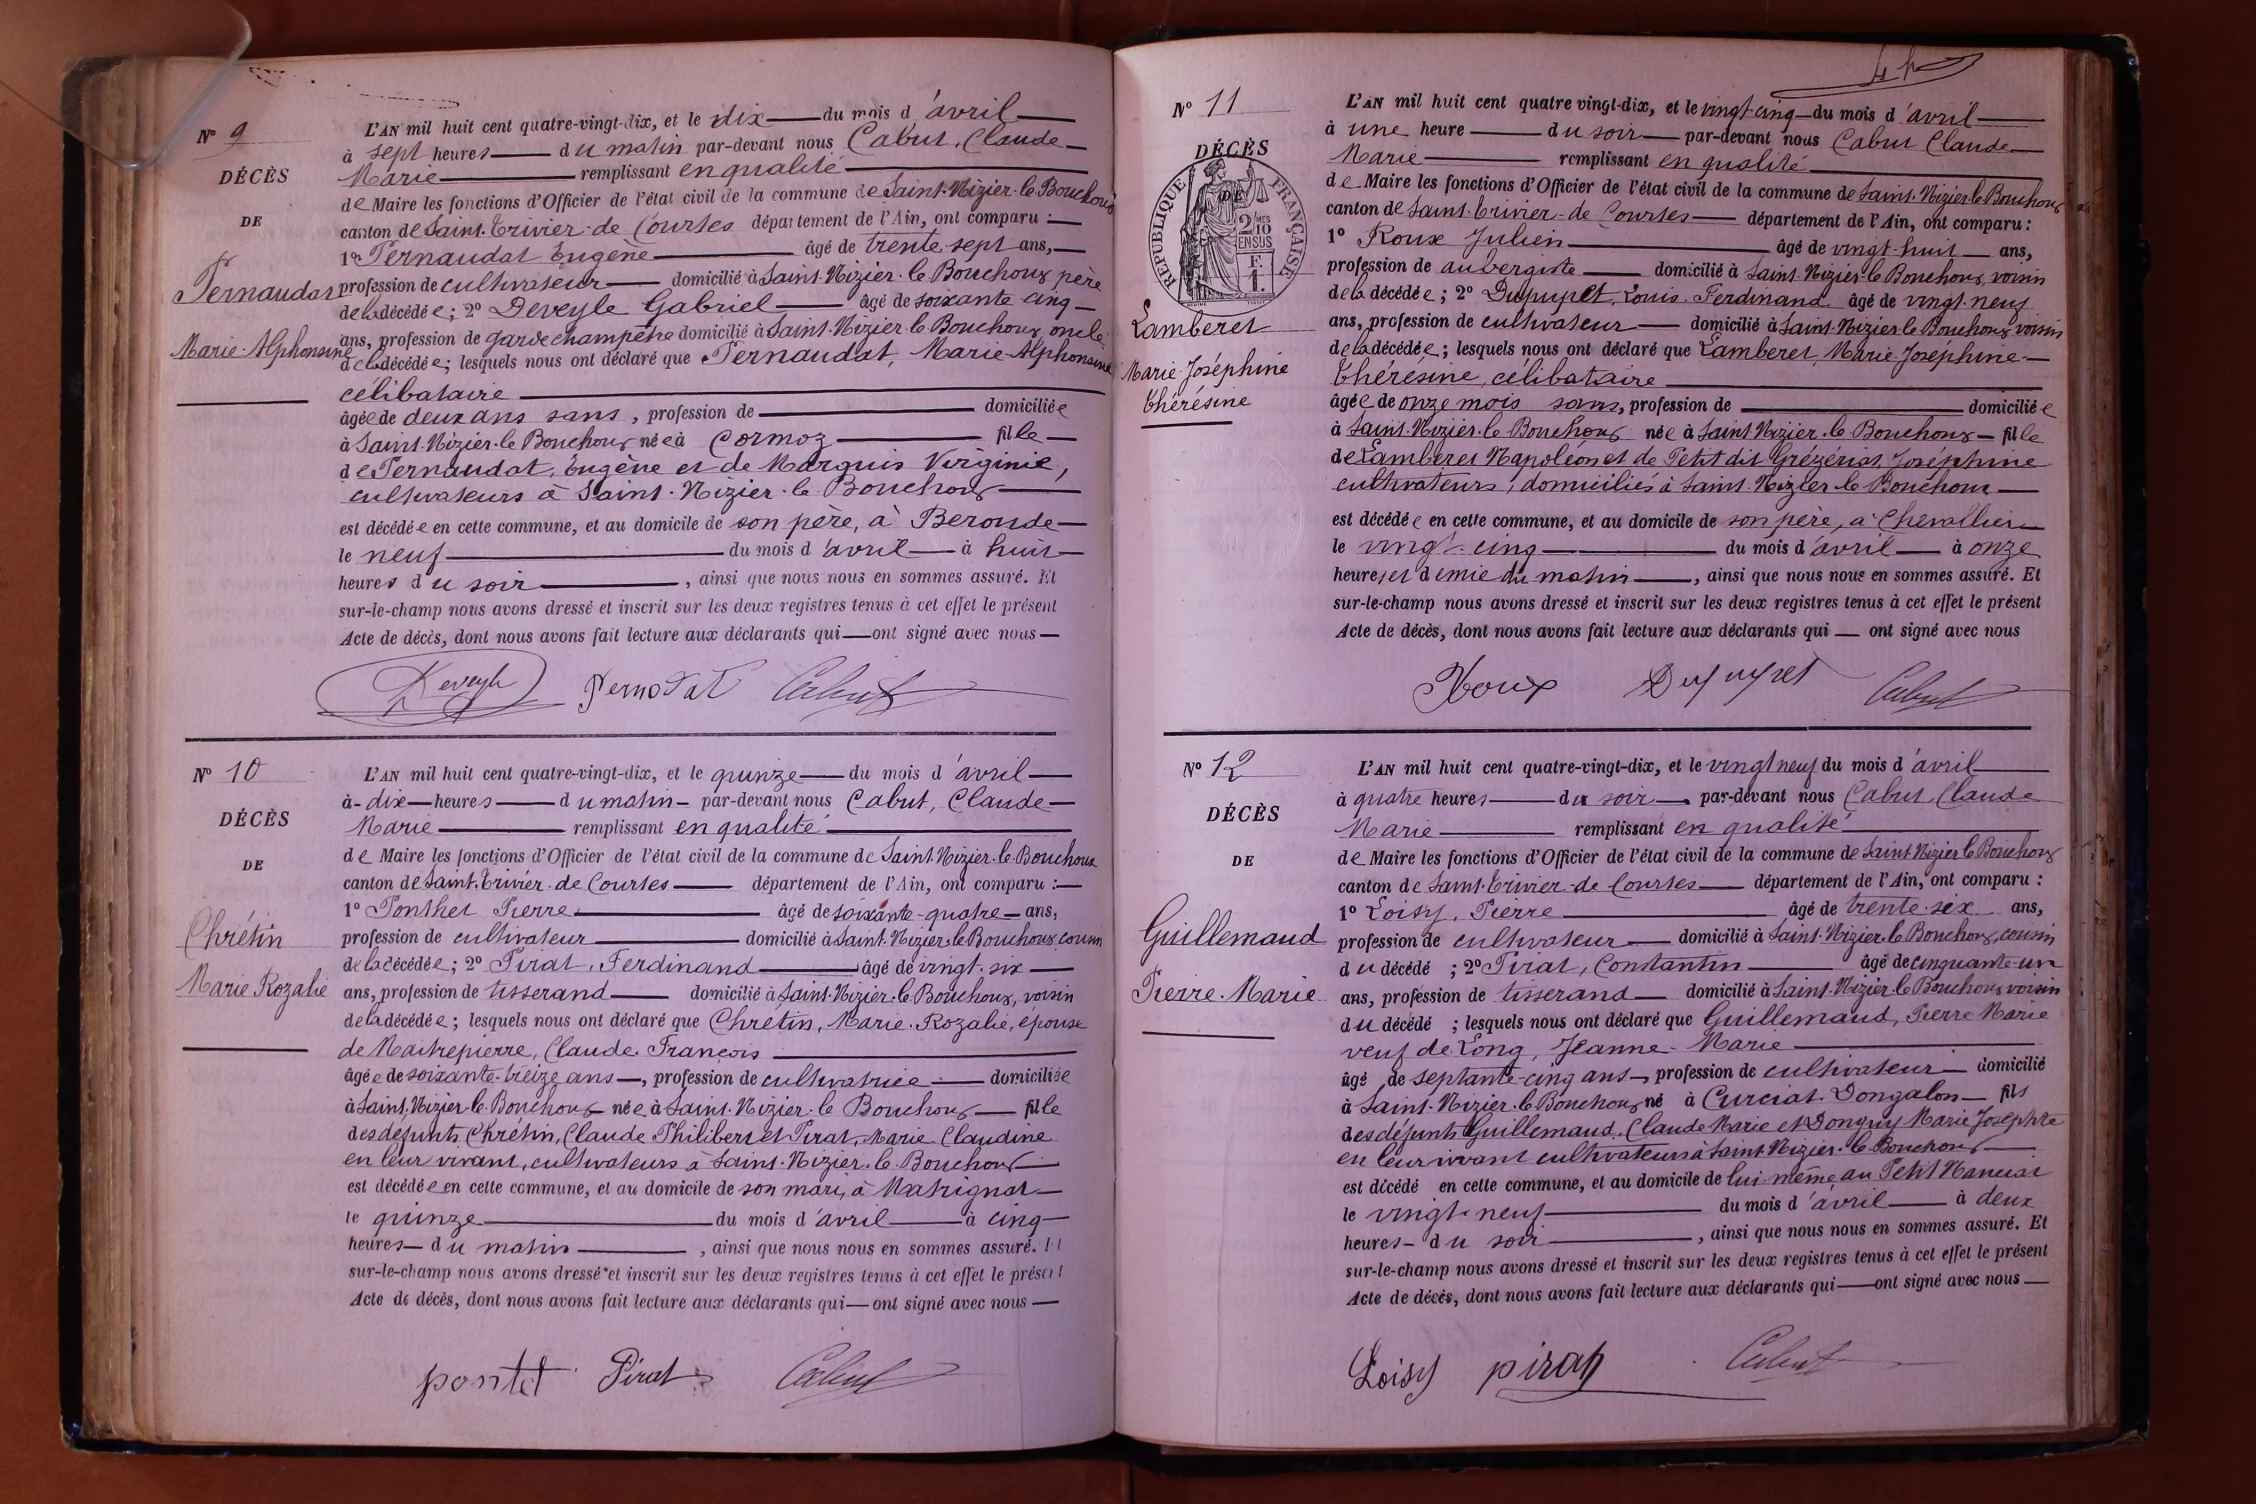 Nº 9
DÉCÈS
DE
Pernaudat
Marie-Alphonsine
L'AN mil huit cent quatre-vingt-dix, et le dix du mois d'avril
à sept heures du matin par-devant nous Cabut, Claude
Marie remplissant en qualité
de Maire les fonctions d'Officier de l'état civil de la commune de Saint-Nizier-le-Bouchoux
canton de Saint-Trivier-de-Courtes département de l'Ain, ont comparu :
1º Pernaudat Eugène âgé de trente-sept ans,
profession de cultivateur domicilié à Saint-Nizier-le-Bouchoux père
de la décédée ; 2º Deveyle Gabriel âgé de soixante cinq
ans, profession de garde champêtre domicilié à Saint-Nizier-le-Bouchoux, oncle
de la décédée ; lesquels nous ont déclaré que Pernaudat, Marie-Alphonsine
célibataire
âgée de deux ans sans, profession de domiciliée
à Saint-Nizier-le-Bouchoux née à Cormoz fille
de Pernaudat, Eugène et de Marquis Virginie,
cultivateurs à Saint-Nizier-le-Bouchoux
est décédée en cette commune, et au domicile de son père, à Beronde
le neuf du mois d'avril à huit
heures du soir, ainsi que nous nous en sommes assuré. Et
sur-le-champ nous avons dressé et inscrit sur les deux registres tenus à cet effet le présent
Acte de décès, dont nous avons fait lecture aux déclarants qui ont signé avec nous
Deveyle Pernodat Cabut
Nº 10
DÉCÈS
DE
Chrétin
Marie Rozalie
L'AN mil huit cent quatre-vingt-dix, et le quinze du mois d'avril
à dix heures du matin par-devant nous Cabut, Claude
Marie remplissant en qualité
de Maire les fonctions d'Officier de l'état civil de la commune de Saint-Nizier-le-Bouchoux
canton de Saint-Trivier-de-Courtes département de l'Ain, ont comparu :
1º Ponthet Pierre âgé de soixante-quatre ans,
profession de cultivateur domicilié à Saint-Nizier-le-Bouchoux cousin
de la décédée ; 2º Pirat, Ferdinand âgé de vingt-six
ans, profession de tisserand domicilié à Saint-Nizier-le-Bouchoux, voisin
de la décédée ; lesquels nous ont déclaré que Chrétin, Marie-Rozalie, épouse
de Maitrepierre, Claude François
âgée de soixante-treize ans, profession de cultivatrice domiciliée
à Saint-Nizier-le-Bouchoux née à Saint-Nizier-le-Bouchoux fille
des défunts Chrétin, Claude Philibert et Pirat, Marie Claudine
en leur vivant, cultivateurs à Saint-Nizier-le-Bouchoux
est décédée en cette commune, et au domicile de son mari, à Matrignat
le quinze du mois d'avril à cinq
heures du matin, ainsi que nous nous en sommes assuré. Et
sur-le-champ nous avons dressé et inscrit sur les deux registres tenus à cet effet le présent
Acte de décès, dont nous avons fait lecture aux déclarants qui ont signé avec nous
pontet Pirat Cabut
Nº 11
DÉCÈS
DE
RÉPUBLIQUE FRANÇAISE
2/10 EN SUS
F. 1.
Lamberet
Marie-Joséphine
Thérésine
L'AN mil huit cent quatre vingt-dix, et le vingt-cinq du mois d'avril
à une heure du soir par-devant nous Cabut Claude
Marie remplissant en qualité
de Maire les fonctions d'Officier de l'état civil de la commune de Saint-Nizier-le-Bouchoux
canton de Saint-Trivier-de-Courtes département de l'Ain, ont comparu :
1º Roux Julien âgé de vingt-huit ans,
profession de aubergiste domicilié à Saint-Nizier-le-Bouchoux, voisin
de la décédée ; 2º Dupupet, Louis-Ferdinand âgé de vingt-neuf
ans, profession de cultivateur domicilié à Saint-Nizier-le-Bouchoux voisin
de la décédée ; lesquels nous ont déclaré que Lamberet, Marie-Joséphine
Thérésine, célibataire
âgée de onze mois sans, profession de domiciliée
à Saint-Nizier-le-Bouchoux née à Saint Nizier-le-Bouchoux fille
de Lamberet Napoléon et de Petit dit Grézériat, Joséphine
cultivateurs, domiciliés à Saint-Nizier-le-Bouchoux
est décédée en cette commune, et au domicile de son père, à Chevallier
le vingt-cinq du mois d'avril à onze
heures et demie du matin, ainsi que nous nous en sommes assuré. Et
sur-le-champ nous avons dressé et inscrit sur les deux registres tenus à cet effet le présent
Acte de décès, dont nous avons fait lecture aux déclarants qui ont signé avec nous
Roux Dupupet Cabut
Nº 12
DÉCÈS
DE
Guillemaud
Pierre-Marie
L'AN mil huit cent quatre-vingt-dix, et le vingt neuf du mois d'avril
à quatre heures du soir par-devant nous Cabut, Claude
Marie remplissant en qualité
de Maire les fonctions d'Officier de l'état civil de la commune de Saint Nizier le Bouchoux
canton de Saint-Trivier-de-Courtes département de l'Ain, ont comparu :
1º Loisy, Pierre âgé de trente-six ans,
profession de cultivateur domicilié à Saint-Nizier-le-Bouchoux, cousin
du décédé ; 2º Pirat, Constantin âgé de cinquante-un
ans, profession de tisserand domicilié à Saint-Nizier le Bouchoux voisin
du décédé ; lesquels nous ont déclaré que Guillemaud, Pierre Marie
veuf de Long, Jeanne-Marie
âgé de septante-cinq ans, profession de cultivateur domicilié
à Saint-Nizier-le-Bouchoux né à Curciat-Dongalon fils
des défunts Guillemaud, Claude Marie et Donguy Marie Josephte
en leur vivant cultivateurs à Saint-Nizier-le-Bouchoux
est décédé en cette commune, et au domicile de lui-même au Petit Mancuat
le vingt-neuf du mois d'avril à deux
heures du soir, ainsi que nous nous en sommes assuré. Et
sur-le-champ nous avons dressé et inscrit sur les deux registres tenus à cet effet le présent
Acte de décès, dont nous avons fait lecture aux déclarants qui ont signé avec nous
Loisy pirat Cabut